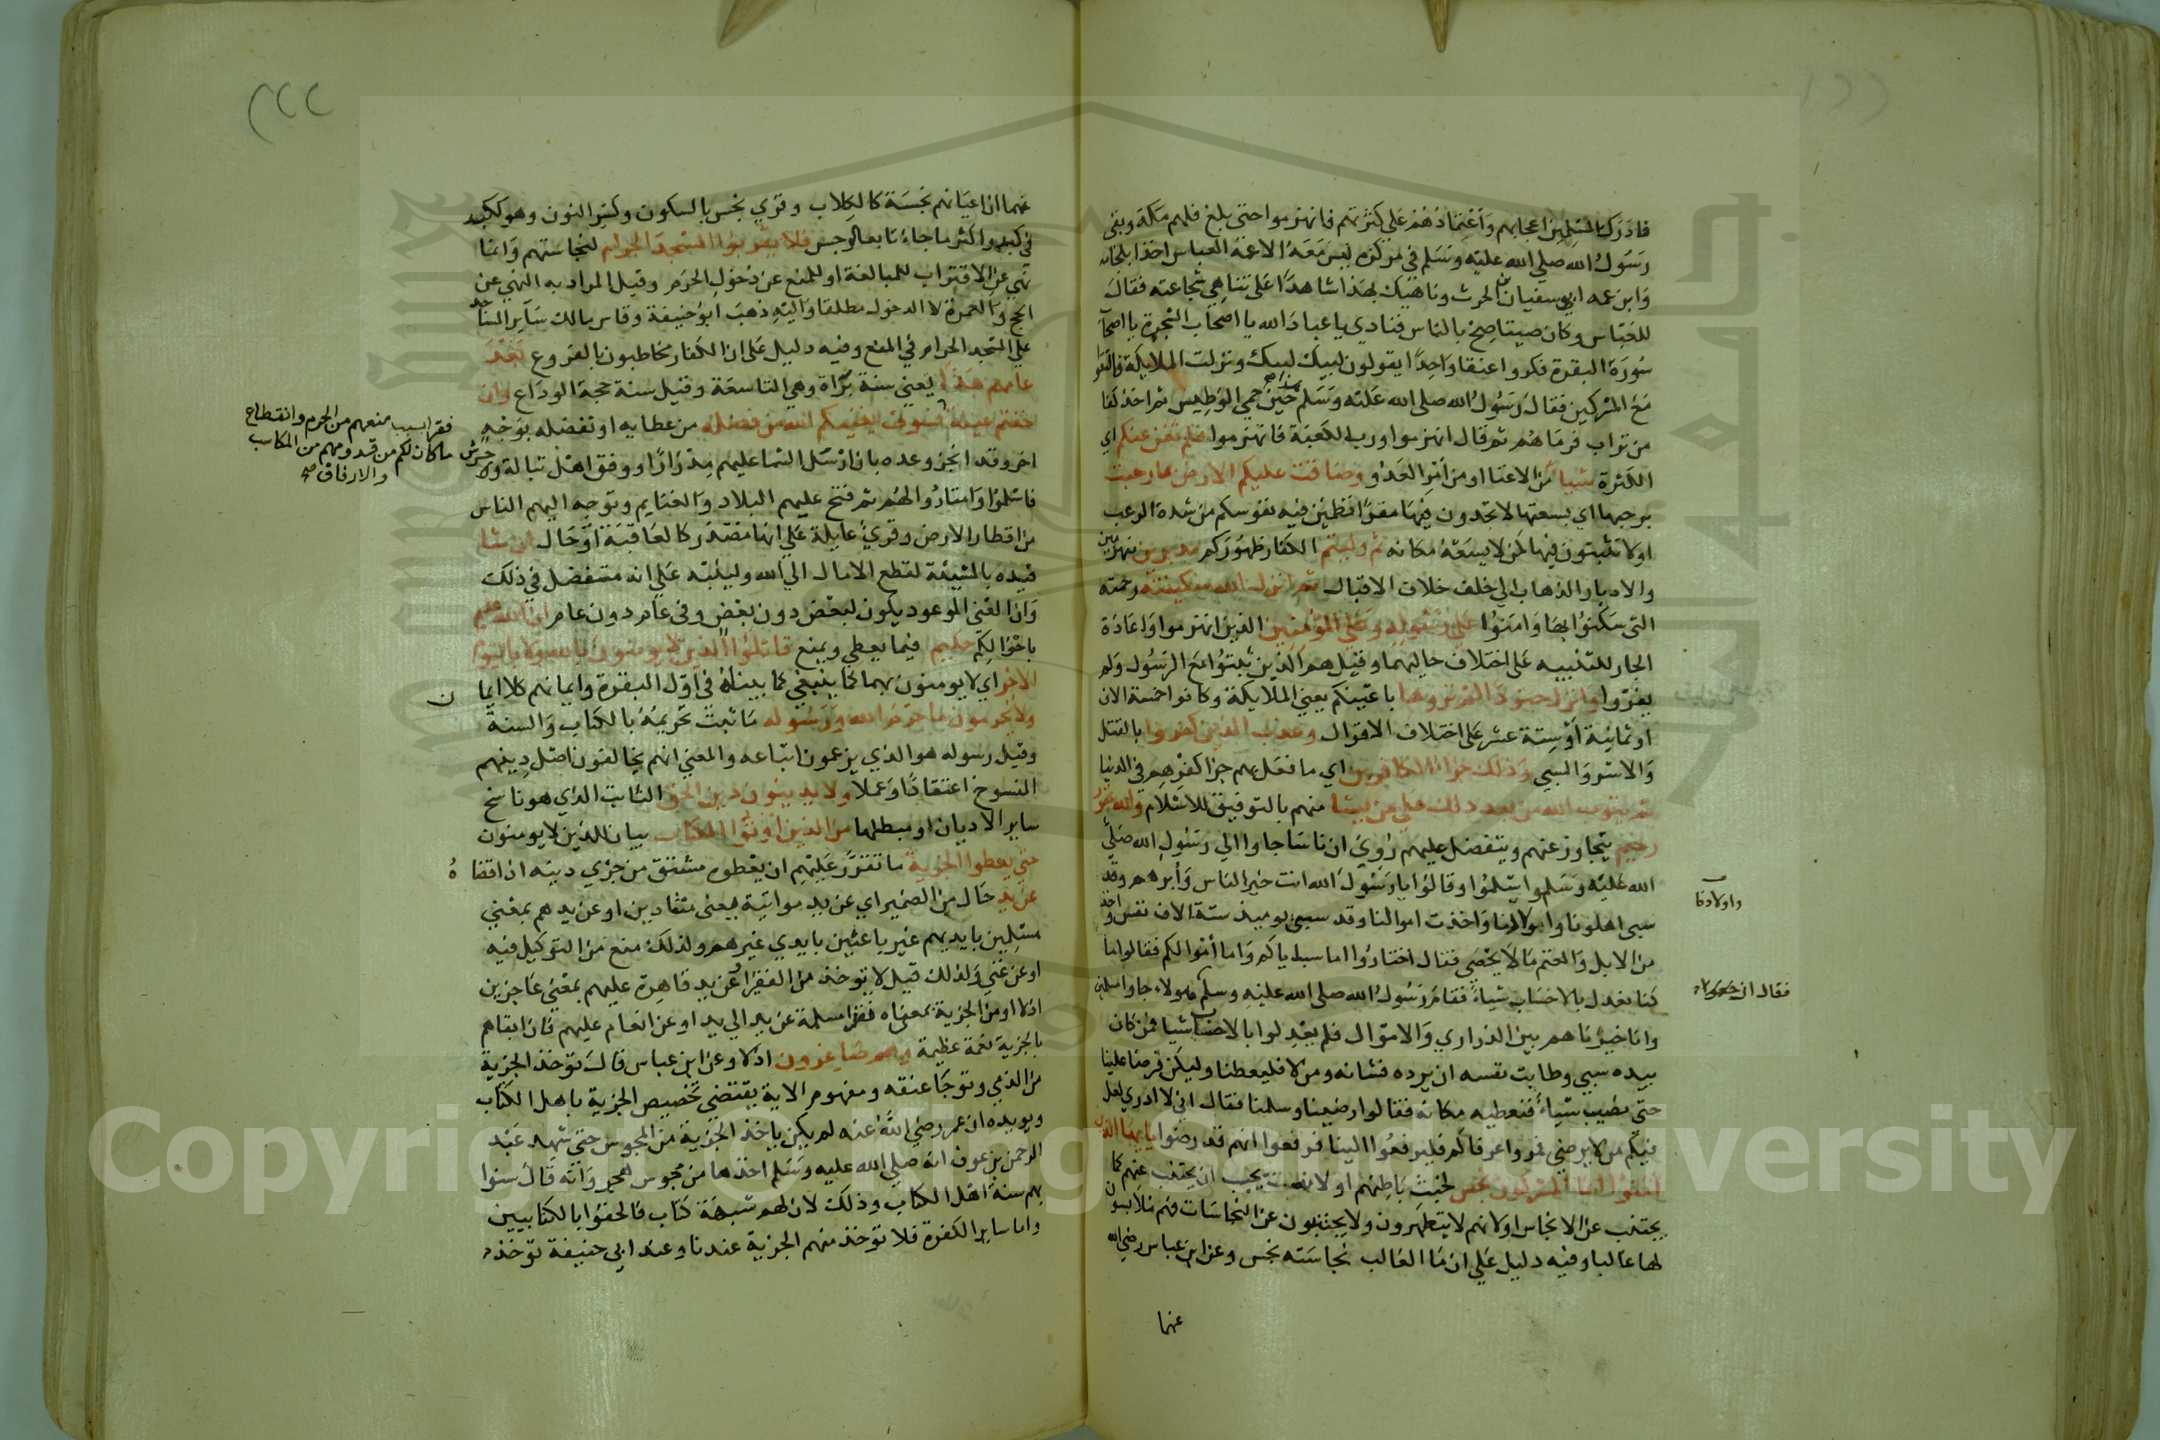 فادرك المسلمين اعجابهم واعتمادهم على كثرتهم فانهزموا حتى بلغ فلهم مكة وبقى
رسول الله صلي الله عليه وسلم في مركزه ليس معه الا عمه العباس اخذا بلجامه
وابن عمه ابو سفيان بن الحرث وناهيك بهذا شاهدا على تناهي شجاعته فقال
للعباس وكان صيتا صح بالناس فنادي يا عباد الله يا اصحاب الشجرة يا اصحاب
سورة البقرة فكروا عنقا واحدا يقولون لبيك لبيك ونزلت الملايكة فالتقوا
مع المشركين فقال رسول الله صلى الله عليه وسلم هذا حين حمي الوطيس ثم اخذ كفا
من تراب فرماهم ثم قال انهزموا ورب الكعبة فانهزموا فلم تغن عنكم اي
الكثرة شيا من الاغنا او من امر العدو وضاقت عليكم الارض بما رحبت
برحبها اي بسعتها لا تجدون فيها مفرا تطمئن فيه نفوسكم من شدة الرعب
او لا تثبتون فيها كمن لا يسعه مكانه ثم وليتم الكفار ظهوركم مدبرين منهزمين
والادبار الذهاب الي خلف خلاف الاقبال ثم انزل الله سكينته رحمته
التى سكنوا بها وامنوا على رسوله وعلى المؤمنين الذين انهزموا واعادة
الجار للتنبيه على اختلاف حاليهما وقيل هم الذين ثبتوا مع الرسول ولم
يفروا وانزل جنودا لم تروها باعينكم يعني الملايكة وكانوا خمسة الاف
او ثمانية او ستة عشر على اختلاف الاقوال وعذب الذين كفروا بالقتل
والاسر والسبي وذلك جزاء الكافرين اي ما فعل بهم جزا كفرهم في الدنيا
ثم يتوب الله من بعد ذلك على من يشا منهم بالتوفيق للاسلام والله غفور
رحيم يتجاوز عنهم ويتفضل عليهم روي ان ناسا جاوا الي رسول الله صلى
الله عليه وسلم واسلموا وقالوا يا رسول الله انت خير الناس وابرهم وقد
سبى اهلونا واولادنا واخذت اموالنا وقد سبي يوميذ ستة الاف نفس واخذ
من الابل والغنم ما لا يحصى فقال اختاروا اما سباياكم واما اموالكم فقالوا ما
كنا نعدل بالاحساب شياء فقام رسول الله صلى الله عليه وسلم هولاء جاوا مسلمين
وانا خيرناهم بين الذراري والاموال فلم يعدلوا بالاحساب شيا فمن كان
بيده سبي وطابت نفسه ان يرده فشانه ومن لا فليعطنا وليكن قرضا علينا
حتى نصيب شياء فنعطيه مكانه فقالوا رضينا وسلمنا فقال انى لا ادري لعل
فيكم من لا يرضى فمروا عرفاكم فليرفعوا الينا فرفعوا انهم قد رضوا يا ايها الذين
امنوا انما المشركون نجس لخبث باطنهم او لانه يجب ان يجتنب عنهم كما
يجتنب عن الانجاس او لانهم لا يتطهرون ولا يجتنبون عن النجاسات فهم ملابسون
لها غالبا وفيه دليل على ان ما الغالب نجاسته نجس وعن ابن عباس رضي الله
عنهما
واولادنا
فقال ان هولاء
عنهما ان اعيانهم نجسة كالكلاب وقري نجس بالسكون وكسر النون وهو ككبد
في كبد واكثر ما جاء تابعا لرجس فلا يقربوا المسجد الحرام لنجاستهم وانما
نهي عن الاقتراب للمبالغة او للمنع عن دخول الحرم وقيل المراد به النهي عن
الحج والعمرة لا الدخول مطلقا واليه ذهب ابو حنيفة وقاس مالك ساير المساجد
علي المسجد الحرام في المنع وفيه دليل على ان الكفار مخاطبون بالفروع بعد
عامهم هذا يعني سنة براة وهي التاسعة وقيل سنة حجة الوداع وان
خفتم عيلة فسوف يغنيكم الله من فضله من عطايه او تفضله بوجه
اخر وقد انجز وعده بان ارسل السما عليهم مدرارا ووفق اهل تبالة وجرش
فاسلموا وامتاروا لهم ثم فتح عليهم البلاد والغنايم وتوجه اليهم الناس
من اقطار الارض وقري عايلة على انها مصدر كالعاقبة او حال ان شا
قيده بالمشيئة لتقطع الامال الي الله ولينبه على انه متفضل في ذلك
وان الغنى الموعود يكون لبعض دون بعض وفى عام دون عام ان الله عليم
باحوالكم حكيم فيما يعطي ويمنع قاتلوا الذين لا يومنون بالله ولا باليوم
الاخر اي لا يومنون بهما كما ينبغي كما بيناه في اول البقرة وايمانهم كلا ايما
ولا يحرمون ما حرم الله ورسوله ما ثبت تحريمه بالكتاب والسنة
وقيل رسوله هو الذي يزعمون اتباعه والمعنى انهم يخالفون اصل دينهم
المنسوخ اعتقادا وعملا ولا يدينون دين الحق الثابت الذي هو ناسخ
ساير الاديان او مبطلها من الذين اوتوا الكتاب بيان للذين لا يومنون
حتي يعطوا الجزية ما تقرر عليهم ان يعطوه مشتق من جزي دينه اذا قضاه
عن يد حال من الضمير اي عن يد مواتية بمعنى منقادين او عن يدهم بمعني
مسلمين بايديهم غير باعثين بايدي غيرهم ولذلك منع من التوكيل فيه
او عن غني ولذلك قيل لا توخذ من الفقير او عن يد قاهرة عليهم بمعنى عاجزين
اذلا او من الجزية بمعنى نقدا مسلمة عن يد الي يد او عن انعام عليهم فان ابقاهم
بالجزية نعمة عظيمة وهم صاغرون اذلا وعن ابن عباس قال توخذ الجزية
من الذمي وتوجا عنقه ومفهوم الاية يقتضي تخصيص الجزية باهل الكتاب
ويويده ان عمر رضي الله عنه لم يكن ياخذ الجزية من المجوس حتى شهد عبد
الرحمن بن عوف انه صلى الله عليه وسلم اخذها من مجوس هجر وانه قال سنوا
بهم سنة اهل الكتاب وذلك لان لهم شبهة كتاب فالحقوا بالكتابيين
واما ساير الكفرة فلا توخذ منهم الجزية عندنا وعند ابي حنيفة توخذ
فقرا بسبب منعهم من الحرم وانقطاع
ما كان لكم من قدومهم من المكاسب
والارفاق صح
ن
Copyright © King Saud University